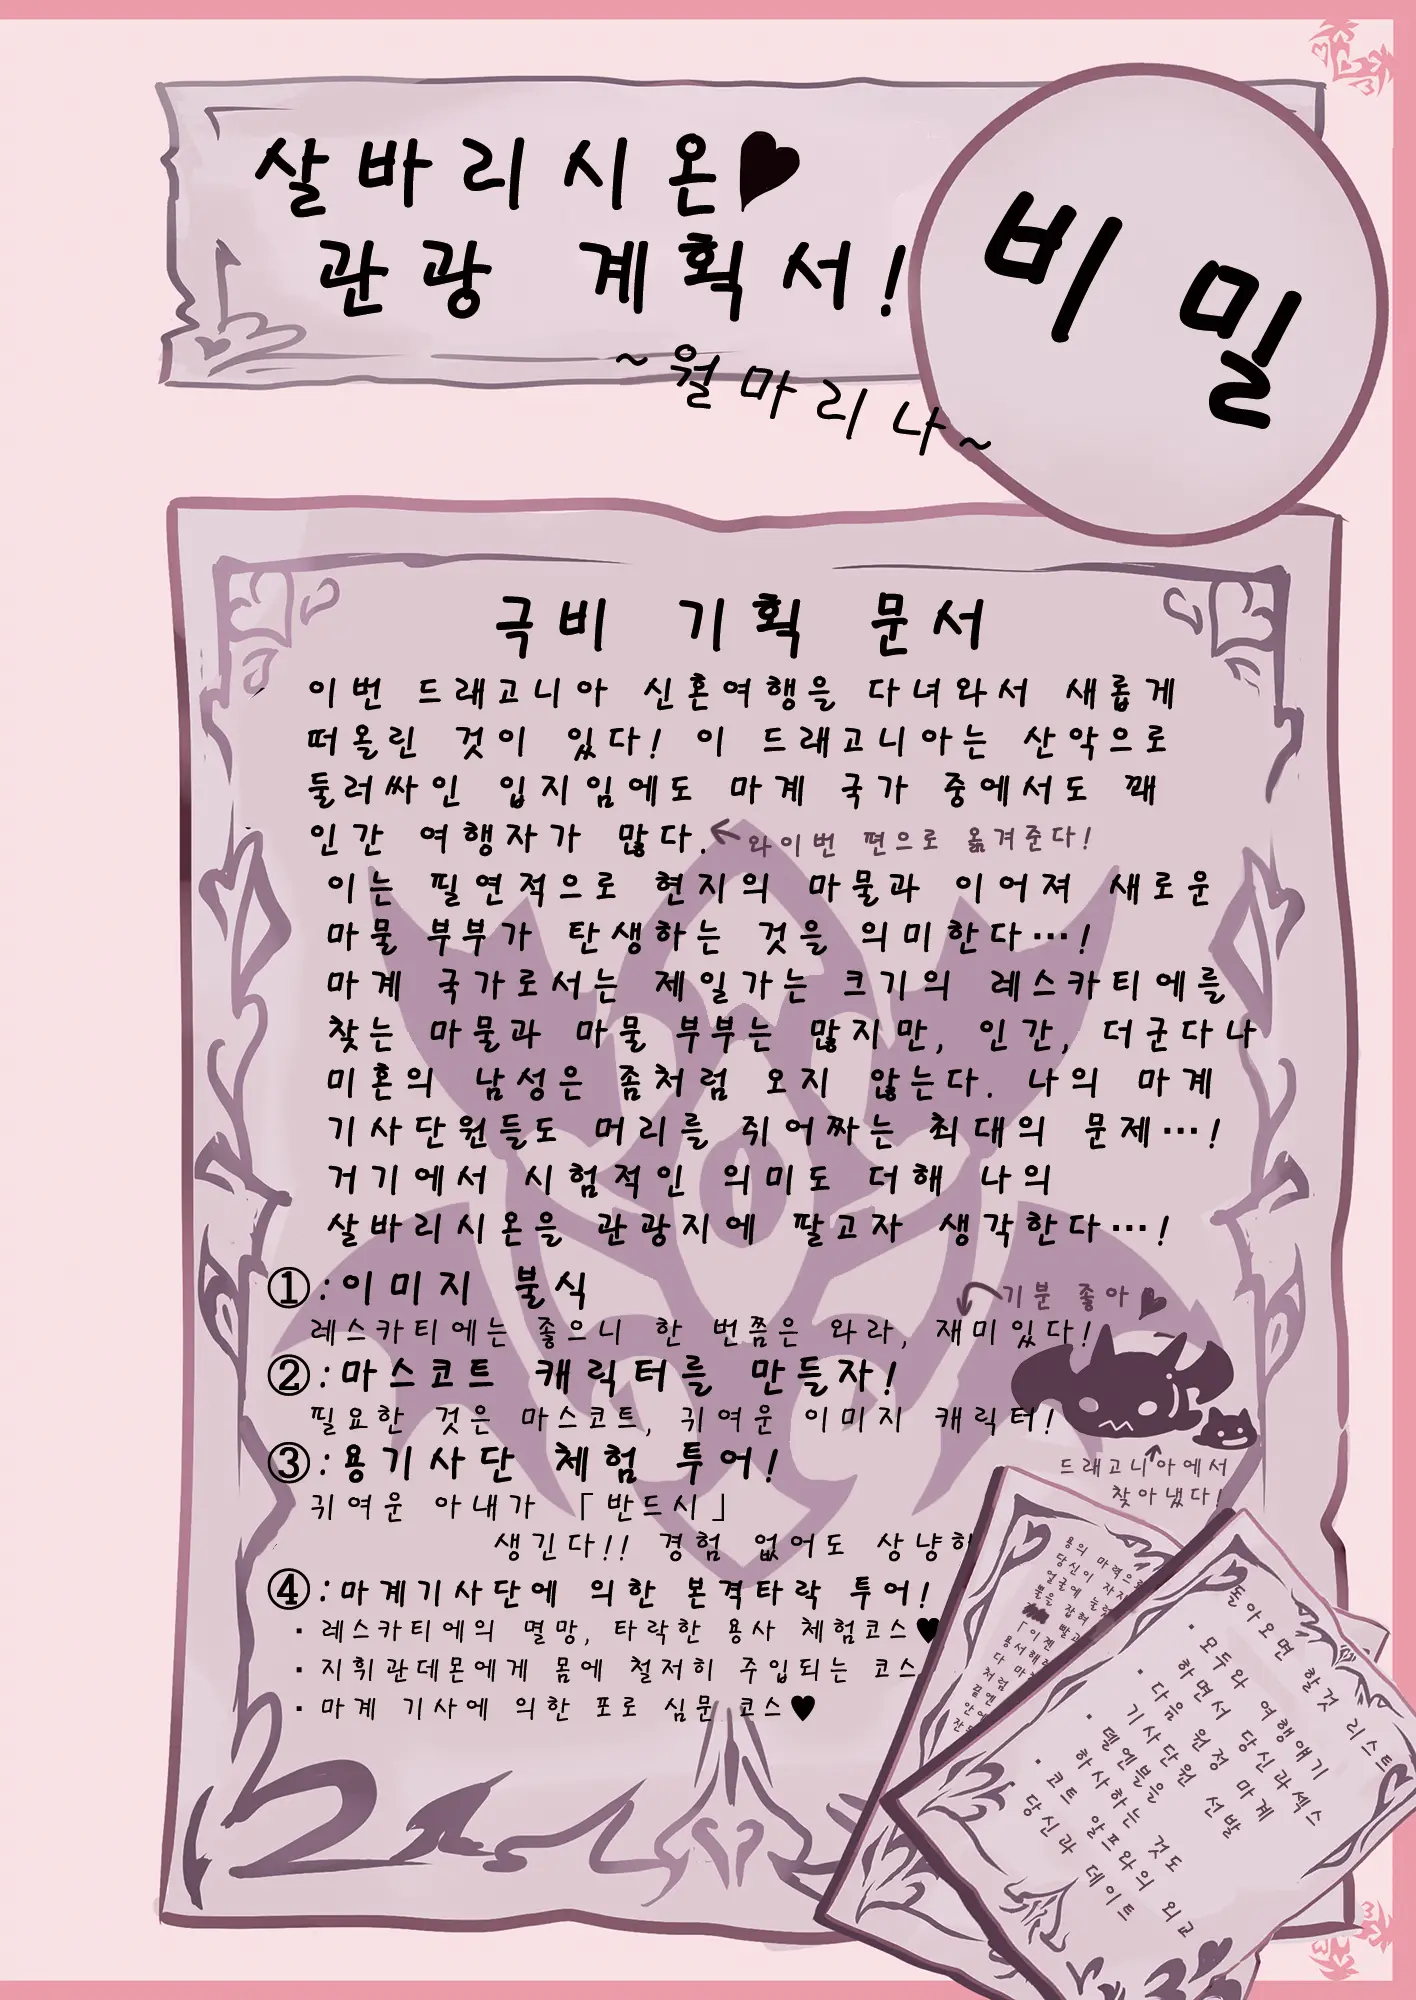 살바리시온♥
관광 계획서!
비밀
~윌마리나~
극비 기획 문서
이번 드래고니아 신혼여행을 다녀와서 새롭게
떠올린 것이 있다! 이 드래고니아는 산악으로
둘러싸인 입지임에도 마계 국가 중에서도 꽤
인간 여행자가 많다.
와이번 편으로 옮겨준다!
이는 필연적으로 현지의 마물과 이어져 새로운
마물 부부가 탄생하는 것을 의미한다…!
마계 국가로서는 제일가는 크기의 레스카티에를
찾는 마물과 마물 부부는 많지만, 인간, 더군다나
미혼의 남성은 좀처럼 오지 않는다. 나의 마계
기사단원들도 머리를 쥐어짜는 최대의 문제…!
거기에서 시험적인 의미도 더해 나의
살바리시온을 관광지에 팔고자 생각한다…!
①:이미지 불식
기분 좋아♥
레스카티에는 좋으니 한 번쯤은 와라, 재미있다!
②:마스코트 캐릭터를 만들자!
필요한 것은 마스코트, 귀여운 이미지 캐릭터!
드래고니아에서
찾아냈다!
③:용기사단 체험 투어!
귀여운 아내가 「반드시」
생긴다!! 경험 없어도 상냥하
④:마계기사단에 의한 본격타락 투어!
· 레스카티에의 멸망, 타락한 용사 체험코스♥
· 지휘관데몬에게 몸에 철저히 주입되는 코스
· 마계 기사에 의한 포로 심문 코스♥
용의 마력으
당신이 자지
얼굴에 눌렀
뿔을 잡혀
「이젠 빨고
용서해
다 마
처럼
끝엔
안에
돌아오면 할것 리스트
· 모두와 여행얘기
하면서 당신과섹스
· 다음 원정 마계
기사단원 선발
· 델엔쁠을
하사하는 것도
· 코트 알프와의 외교
당신과 데이트